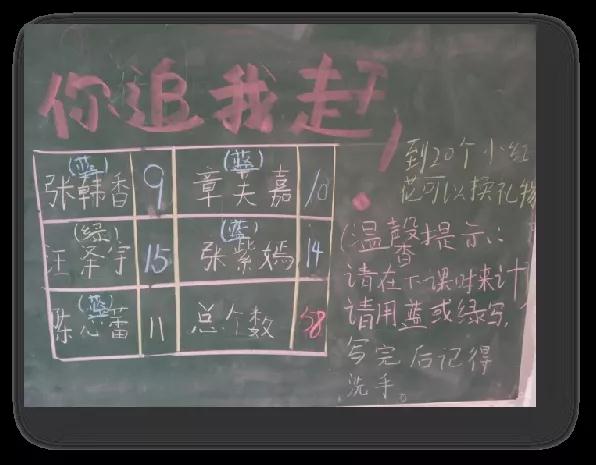 你追我赶
(蓝) (蓝)
张韩香 9 章夫嘉 10
(绿) (蓝)
汪泽宇 15 张紫嫣 14
(蓝)
陈心蕾 11 总个数 58
到20个小红
花可以换礼物
(温馨提示:
请在下课时来计
请用蓝或绿写,
写完后记得
洗手。